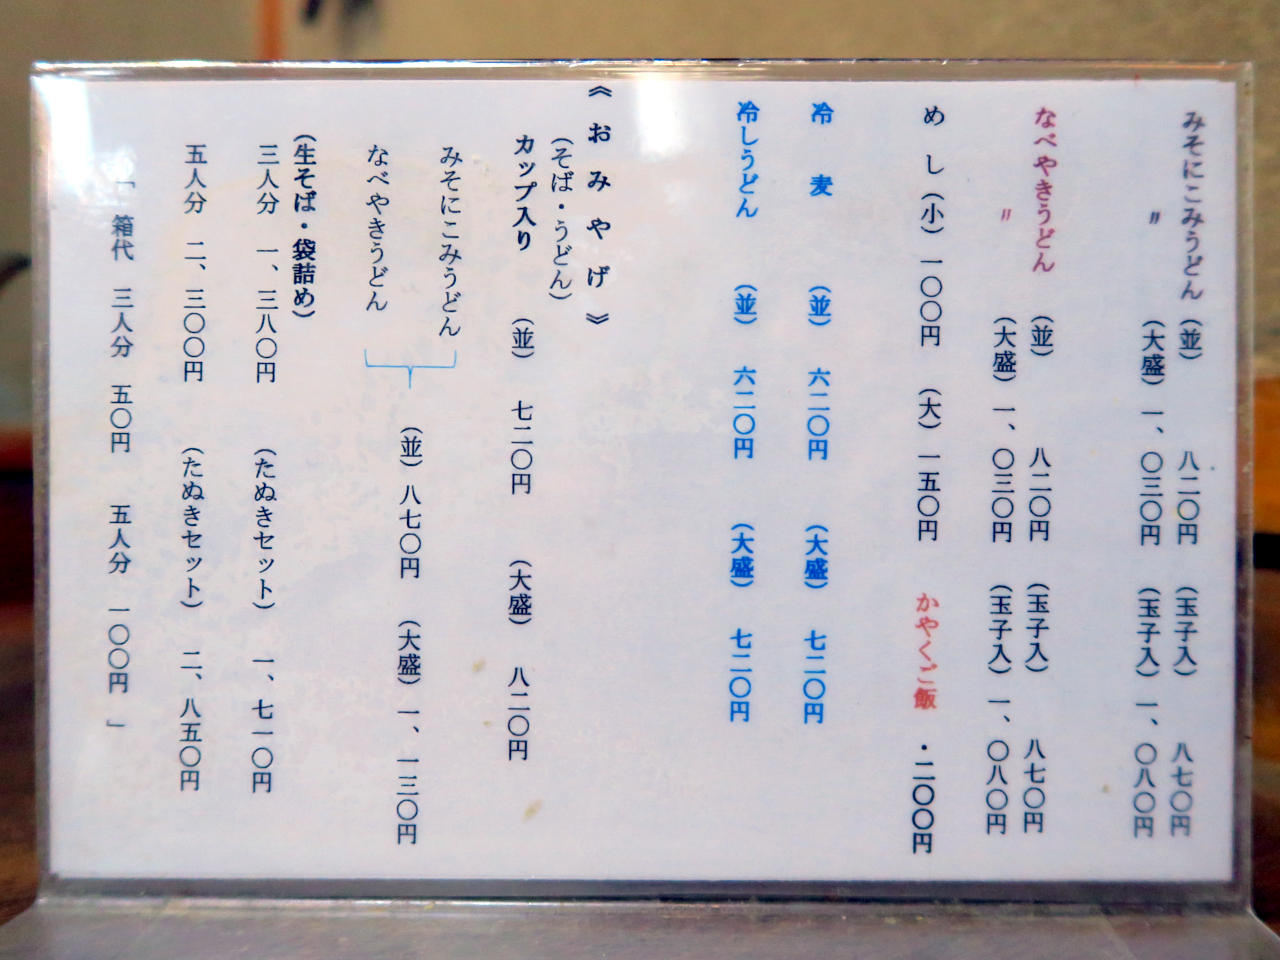 みそにこみうどん（並）　八二〇円　（玉子入）　八七〇円
〃　（大盛）一、〇三〇円　（玉子入）　一、〇八〇円
なべやきうどん　（並）　八二〇円　（玉子入）　八七〇円
〃　（大盛）一、〇三〇円　（玉子入）　一、〇八〇円
めし（小）一〇〇円　（大）一五〇円　かやくご飯・二〇〇円
冷　麦　（並）　六二〇円　（大盛）　七二〇円
冷しうどん　（並）　六二〇円　（大盛）　七二〇円
《おみやげ》
（そば・うどん）
カップ入り　（並）　七二〇円　（大盛）　八二〇円
みそにこみうどん
なべやきうどん
（並）八七〇円　（大盛）一、一三〇円
（生そば・袋詰め）
三人分　一、三八〇円　（たぬきセット）　一、七一〇円
五人分　二、三〇〇円　（たぬきセット）　二、八五〇円
「　箱代　三人分　五〇円　五人分　一〇〇円　」